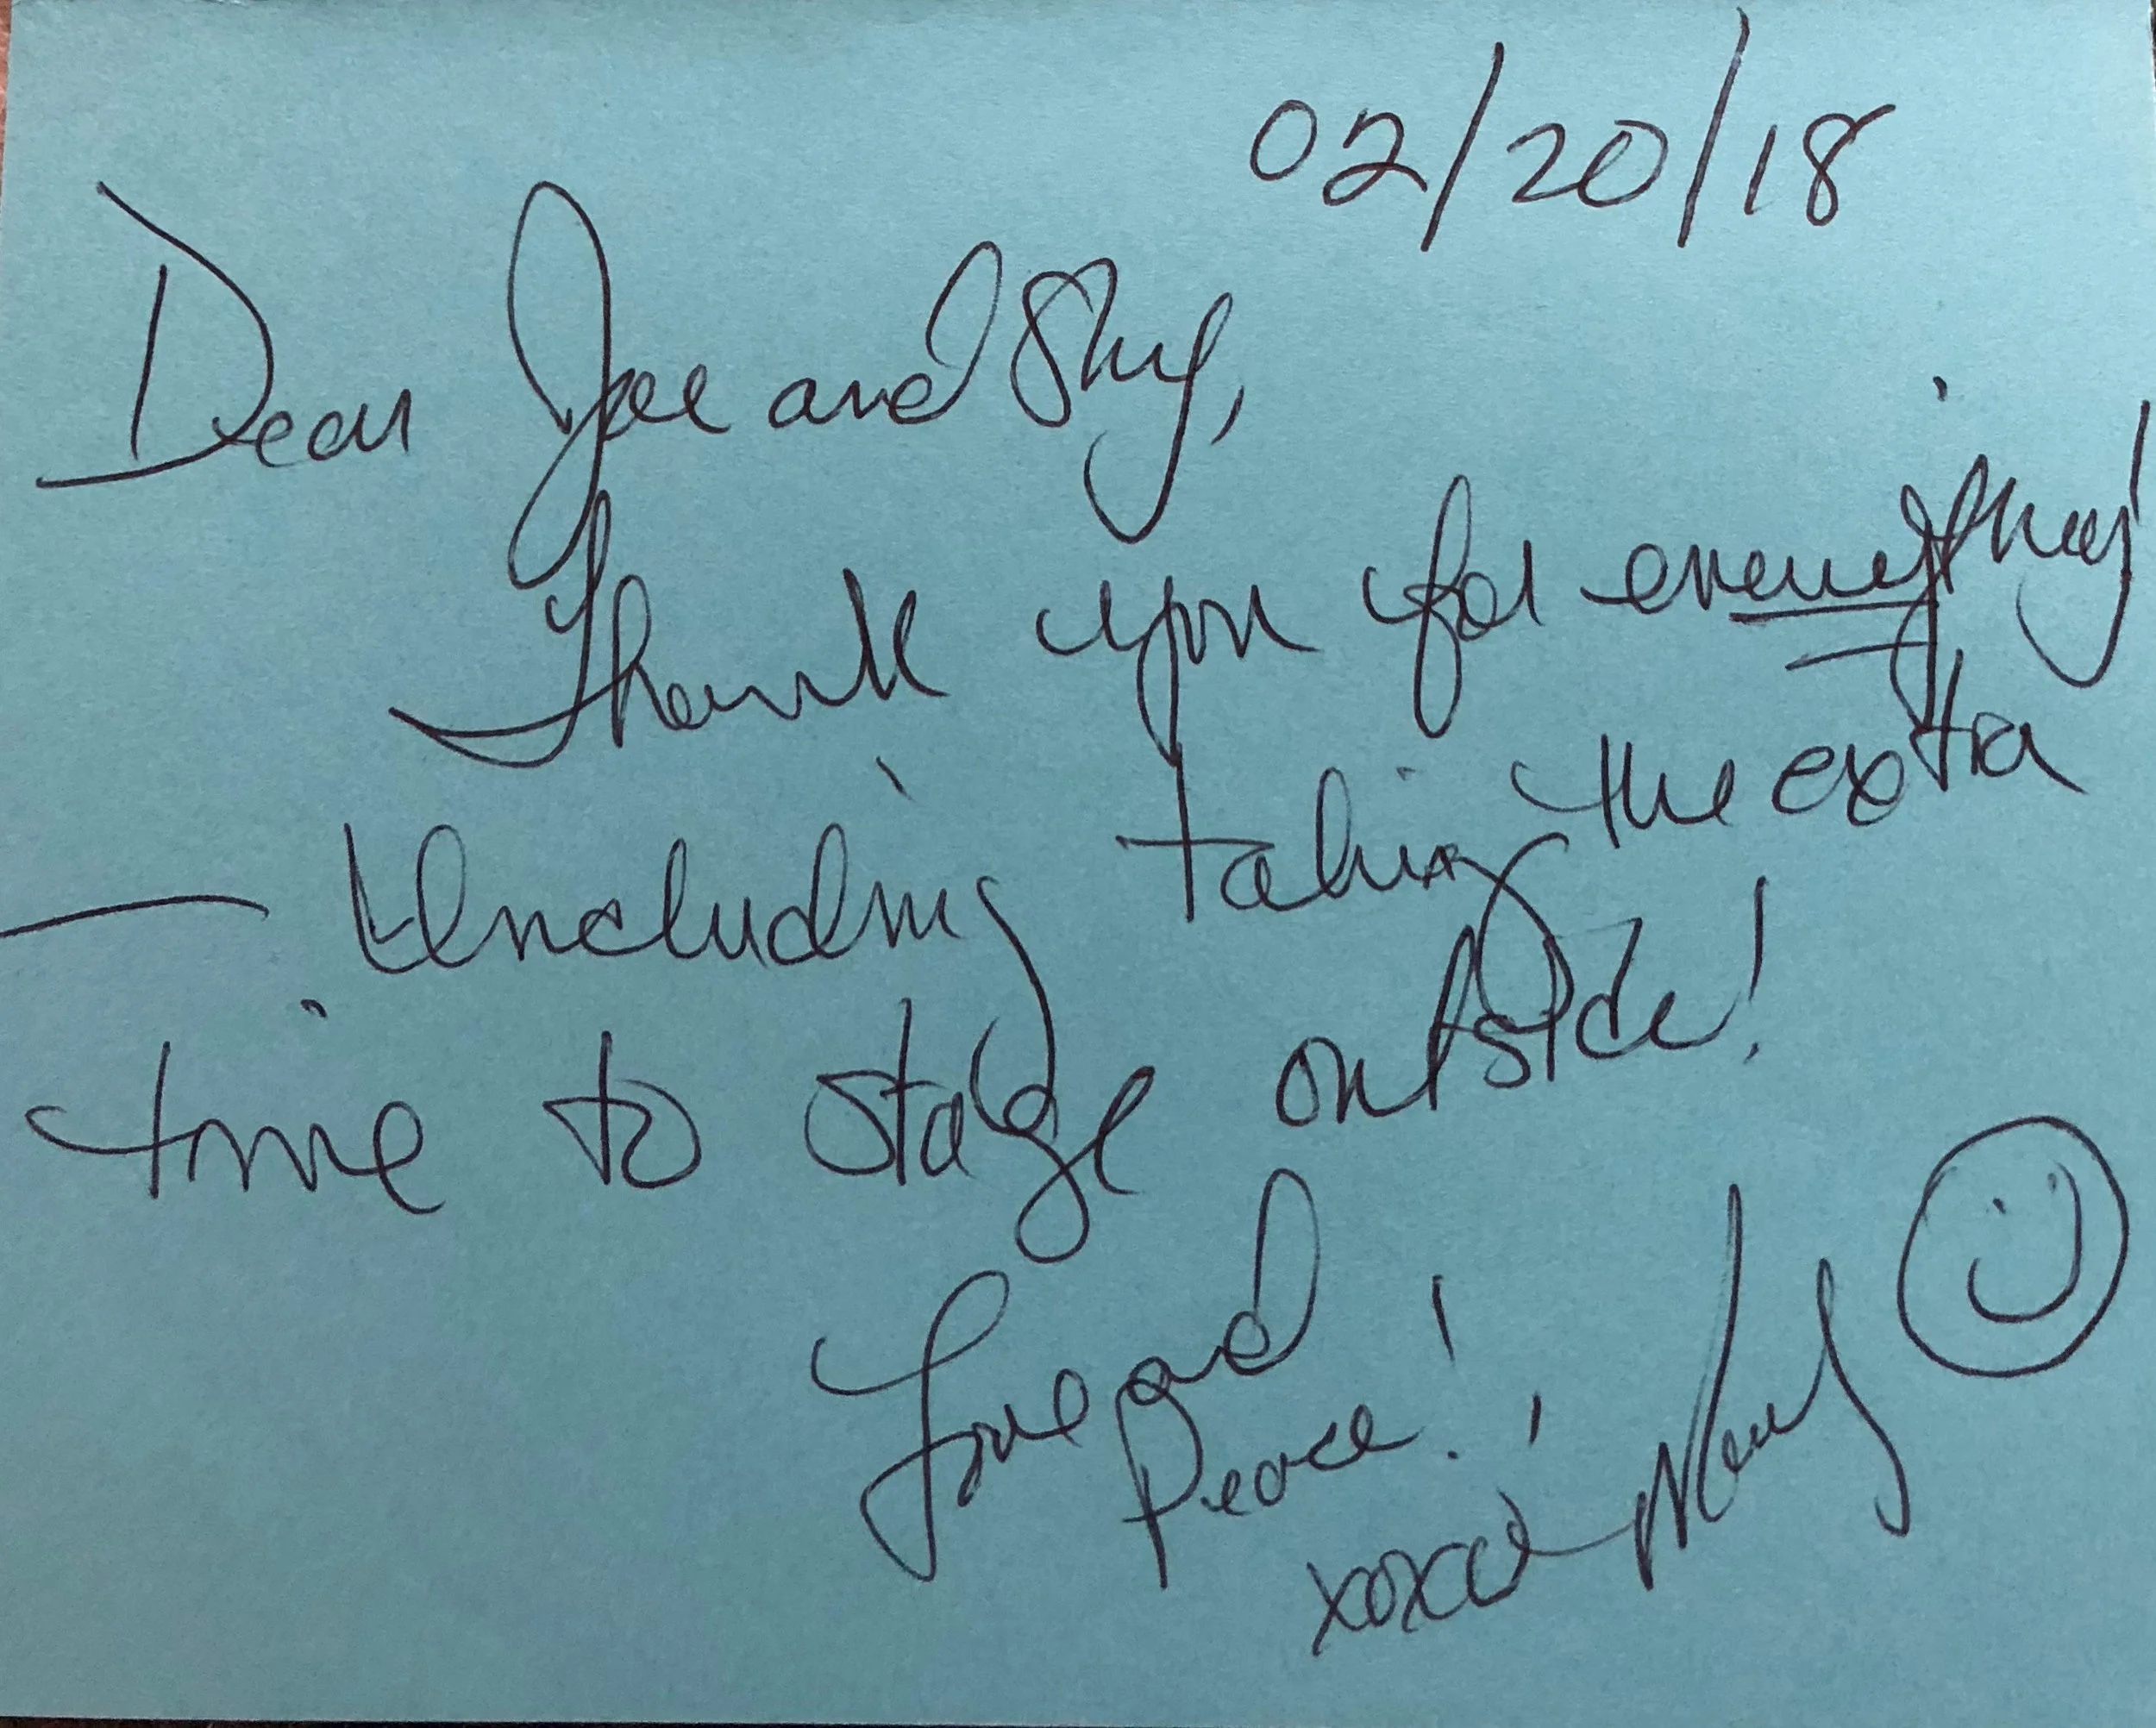 02/20/18
Dear Joe and
Thank you for everything!
— Including taking the extra
time to stage outside!
Love and
Peace!
xoxo